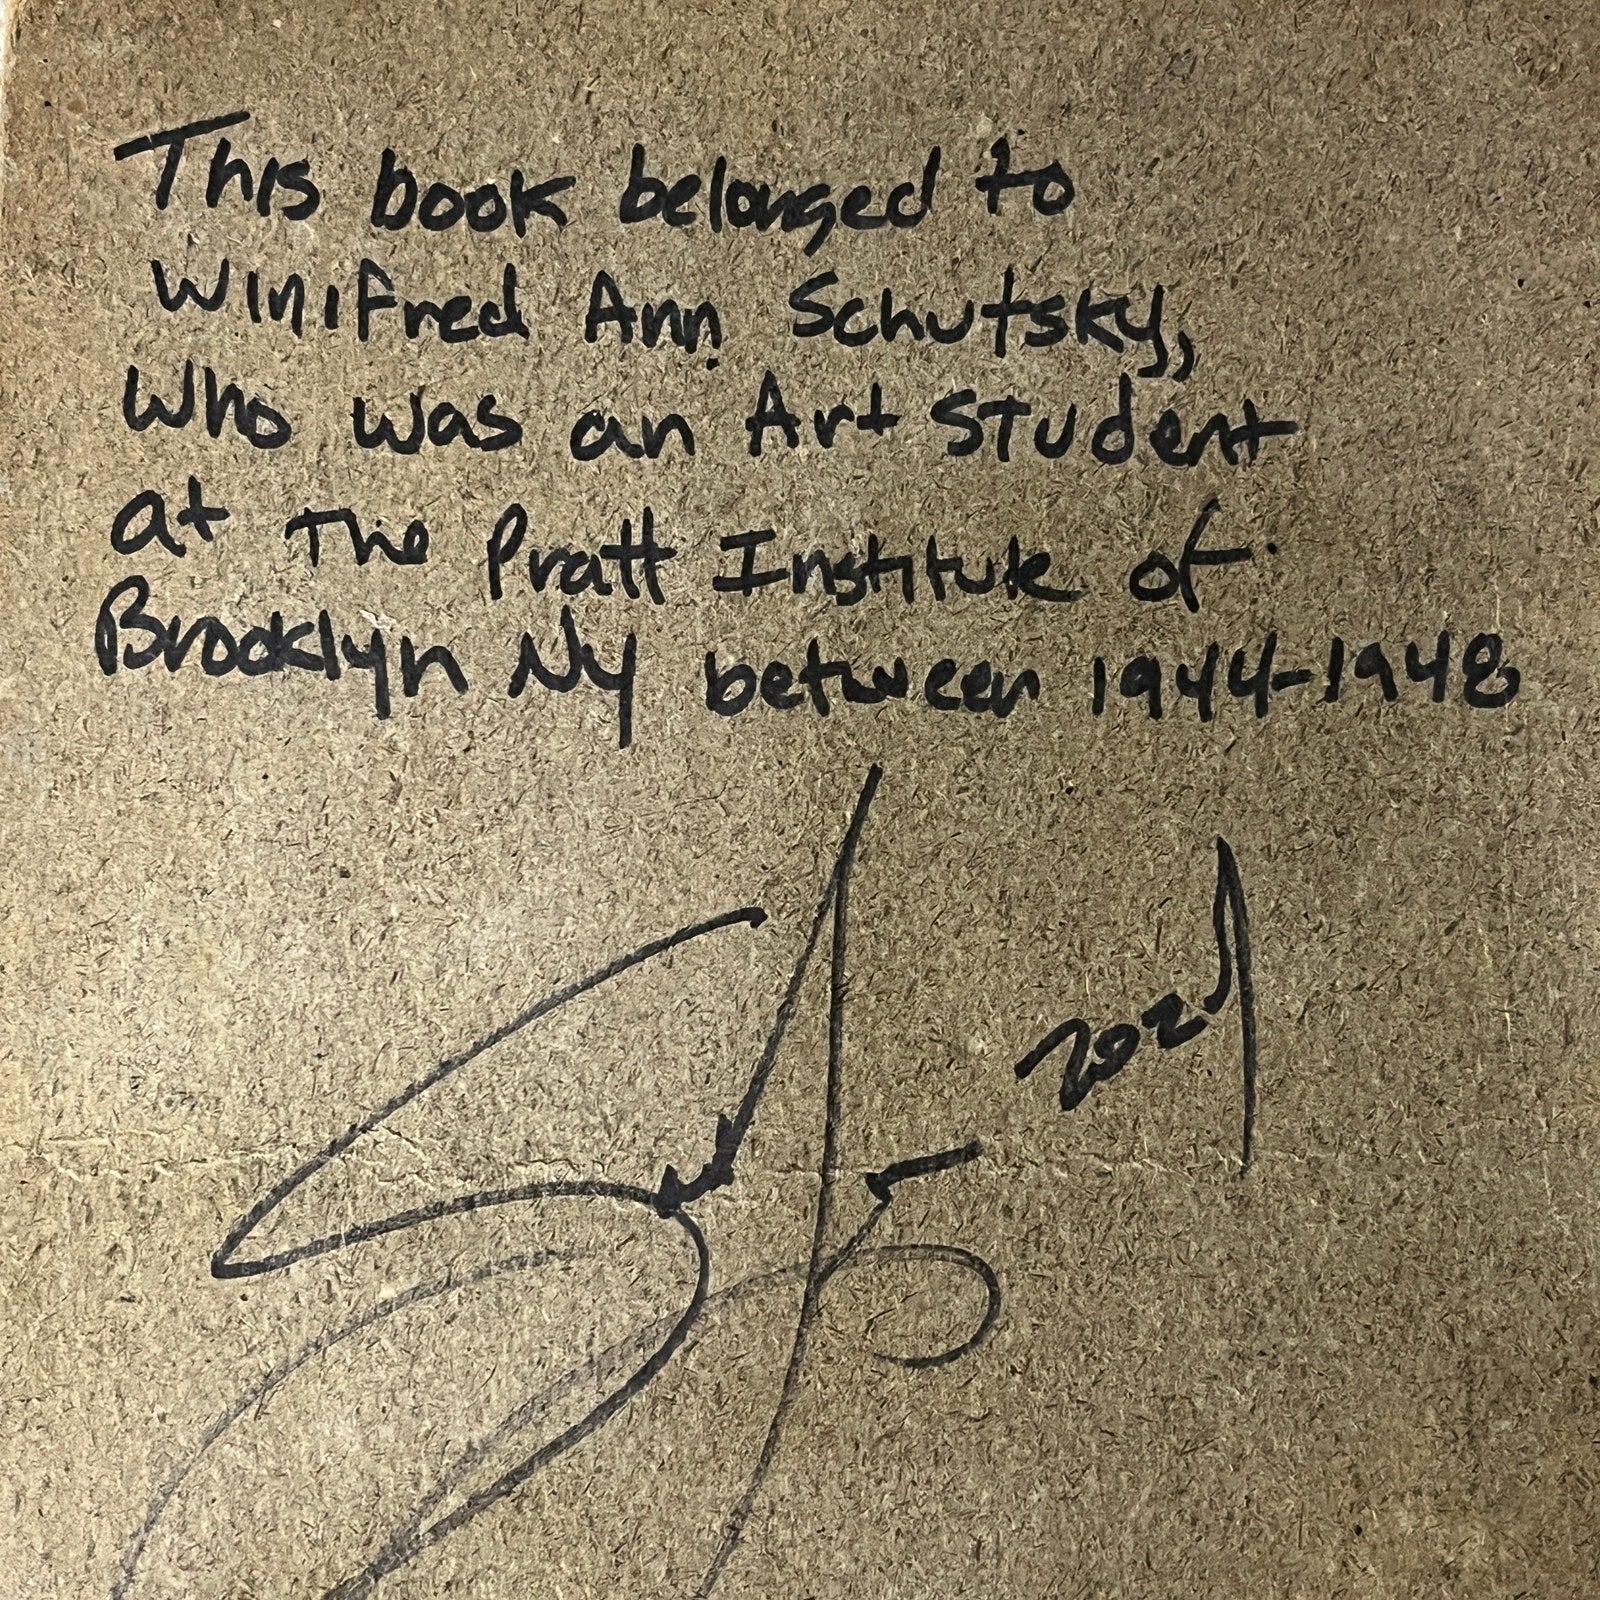 This book belonged to
Winifred Ann Schutsky,
Who was an Art Student
at The Pratt Institute of
Brooklyn NY between 1944-1948